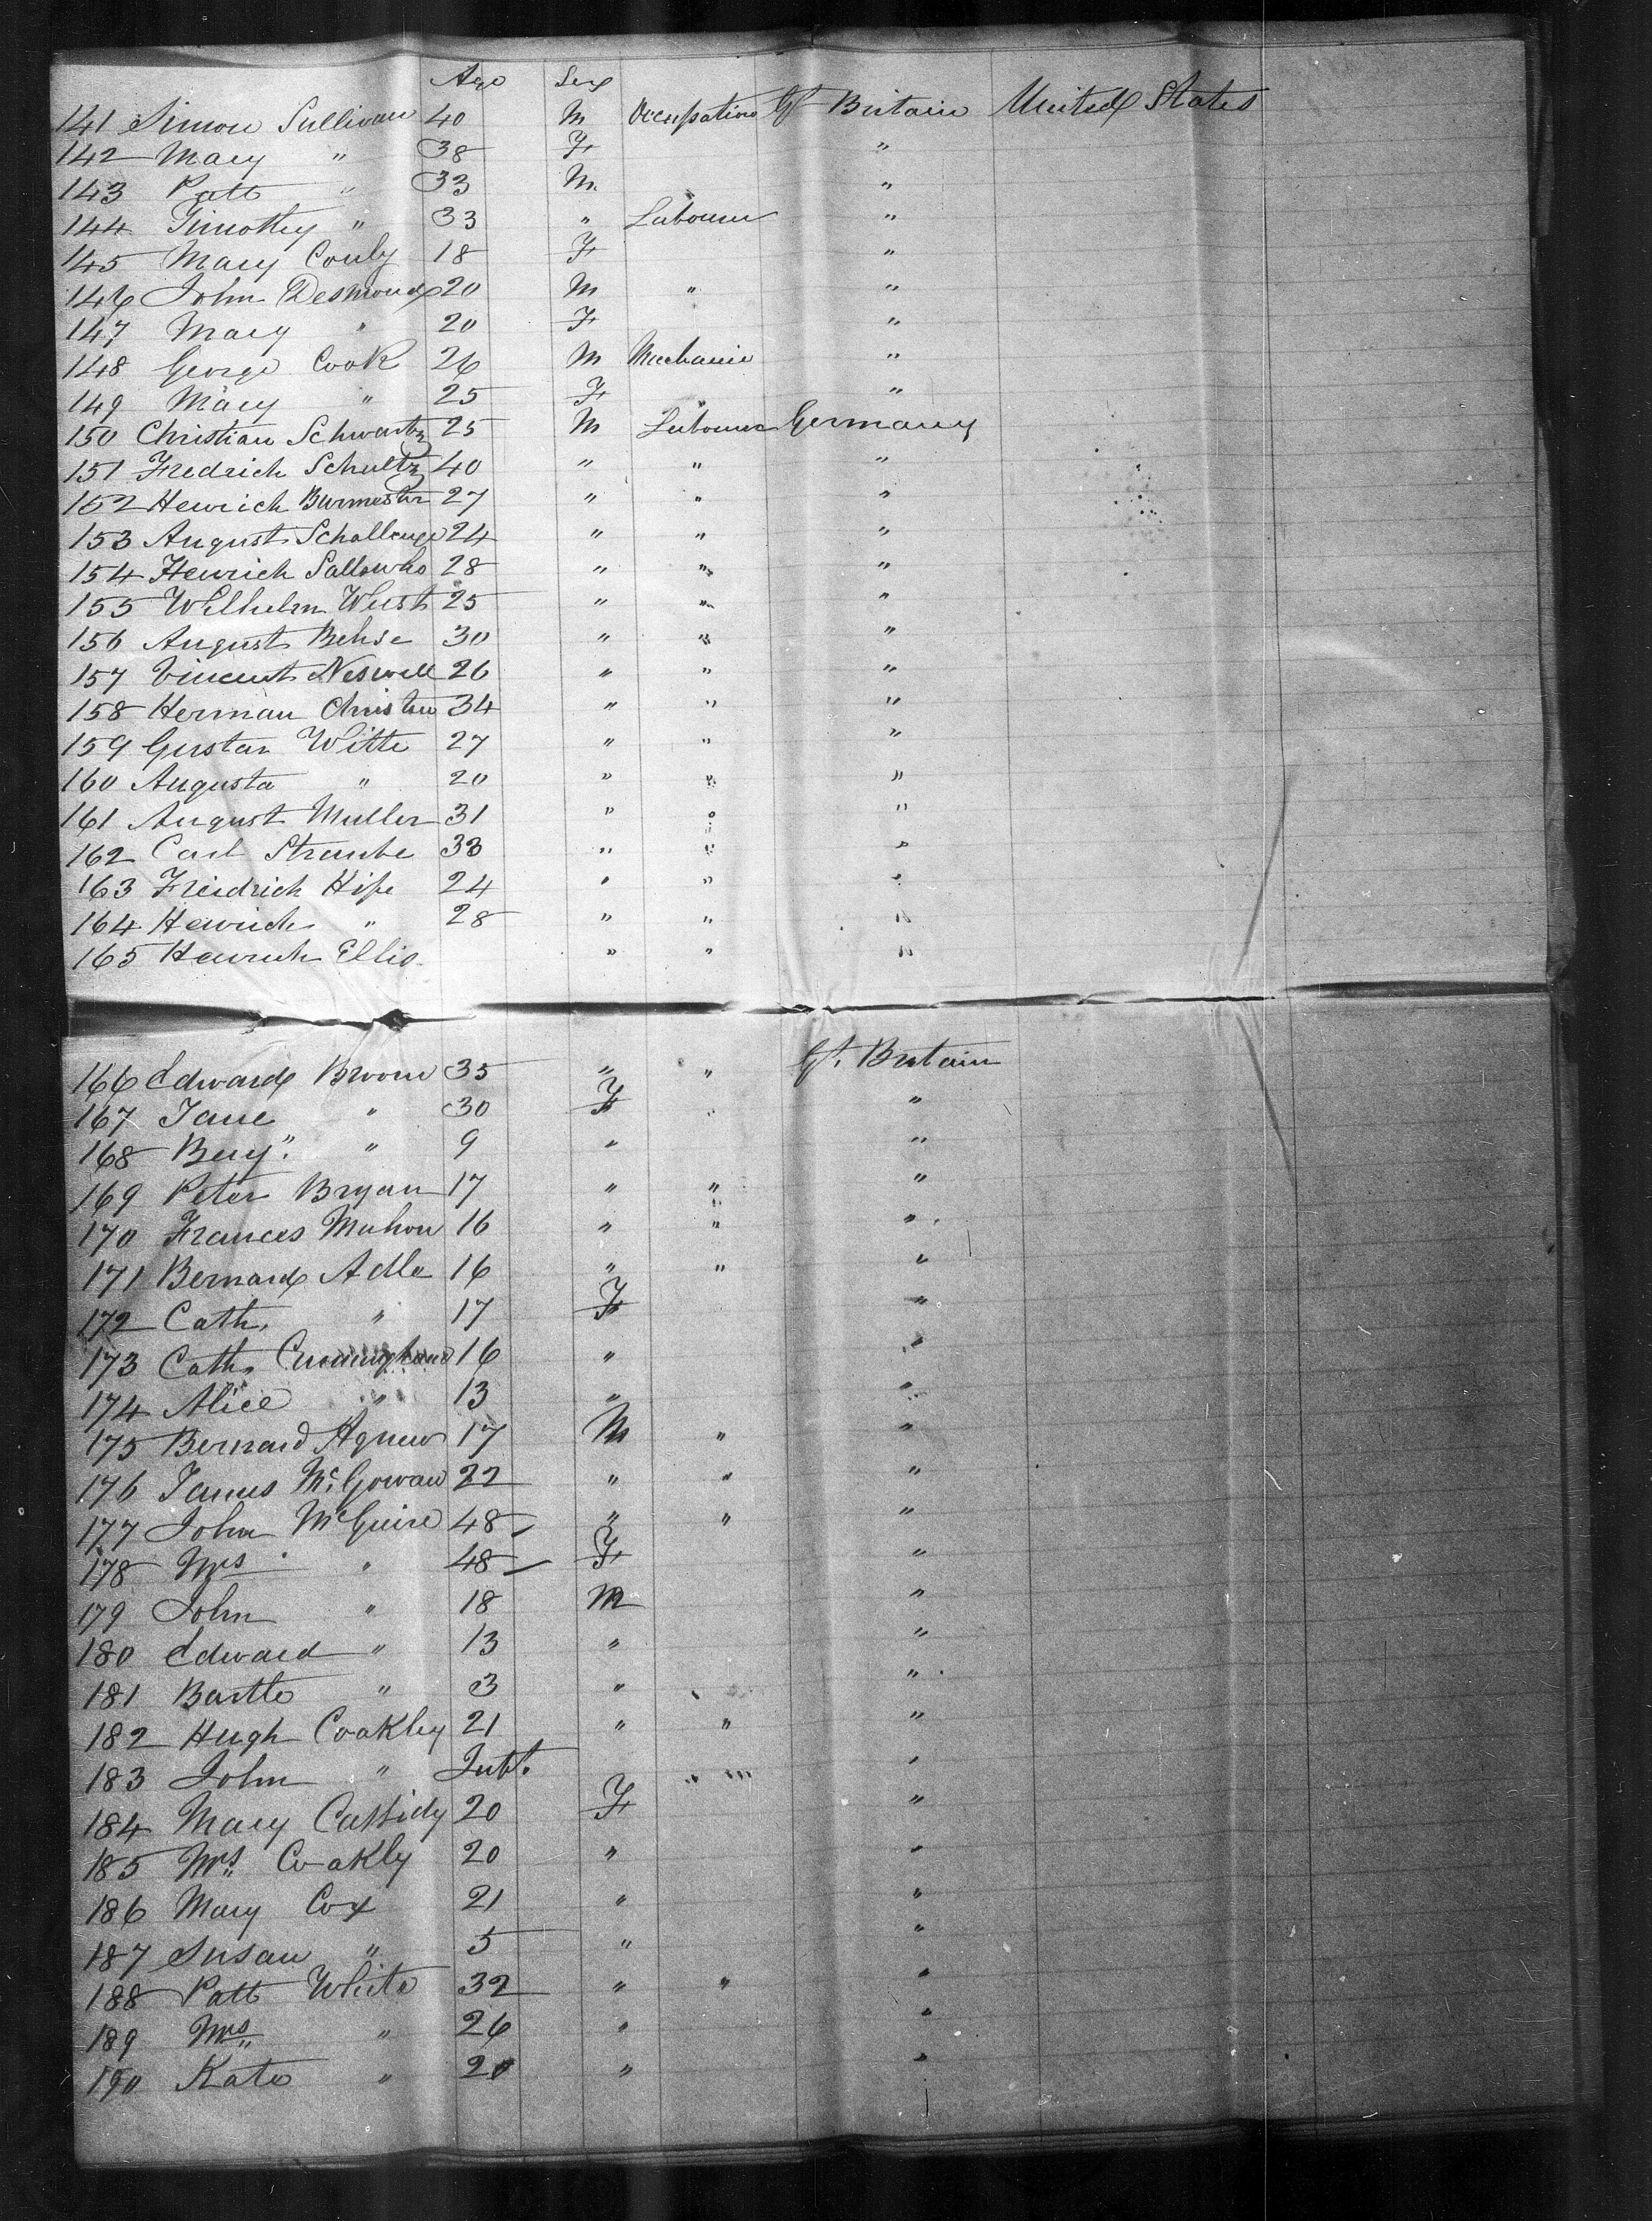 Age Sex
141 Simon Sullivan 40 M Occupation Gt Britain United States
142 Mary " 38 F "
143 Patt " 33 M "
144 Timothy " 33 " Labourer "
145 Mary Conly 18 F "
146 John Desmond 20 M " "
147 Mary " 20 F "
148 George Cook 26 M Mechanic "
149 Mary " 25 F " "
150 Christian Schwartz 25 M Labourer Germany
151 Fredrich Schultz 40 " " "
152 Henrich Burmester 27 " " "
153 August 24 " " "
154 Henrich 28 " " "
155 Wilhelm Wust 25 " " "
156 August Behse 30 " " "
157 Vincent Neswell 26 " " "
158 Herman Christen 34 " " "
159 Gustav Witte 27 " " "
160 Augusta " 20 " " "
161 August Muller 31 " " "
162 Carl Straube 33 " " "
163 Freidrich Hipe 24 " " "
164 Henrich " 28 " " "
165 Henrich Ellis " " "
166 Edward Broom 35 " " Gt. Britain
167 Jane " 30 F " "
168 Benj." " 9 " "
169 Peter Bryan 17 " " "
170 Frances Mahon 16 " " "
171 Bernard Adle 16 " " "
172 Cath. " 17 F "
173 Cath. Cunningham 16 " "
174 Alice " 13 " "
175 Bernard Agnew 17 M " "
176 James McGowan 22 " " "
177 John McGuire 48 " " "
178 Mrs " 48 F "
179 John " 18 M "
180 Edward " 13 " "
181 Bartle " 3 " "
182 Hugh Coakley 21 " " "
183 John " Inft. " "
184 Mary Cassidy 20 F "
185 Mrs Coakly 20 " "
186 Mary Cox 21 " "
187 Susan " 5 " "
188 Patt White 32 " " "
189 Mrs " 26 " "
190 Kate " 20 " "